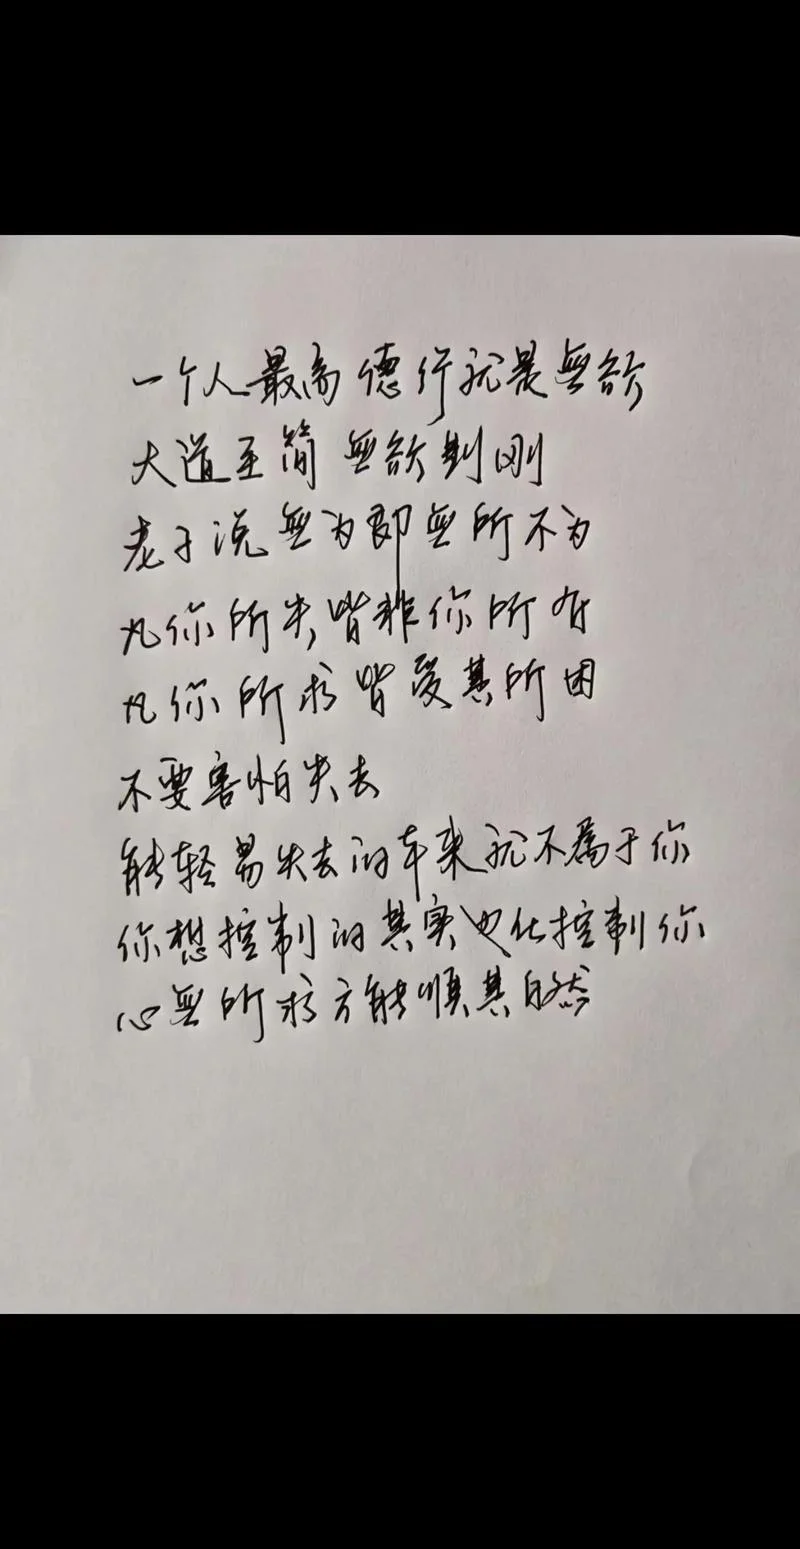 一个人最高德行就是無欲
大道至简 無欲则刚
老子说無为即無所不为
凡你所失,皆非你所有
凡你所求皆受其所困
不要害怕失去
能轻易失去的本来就不属于你
你想控制的其实也在控制你
心無所求方能顺其自然